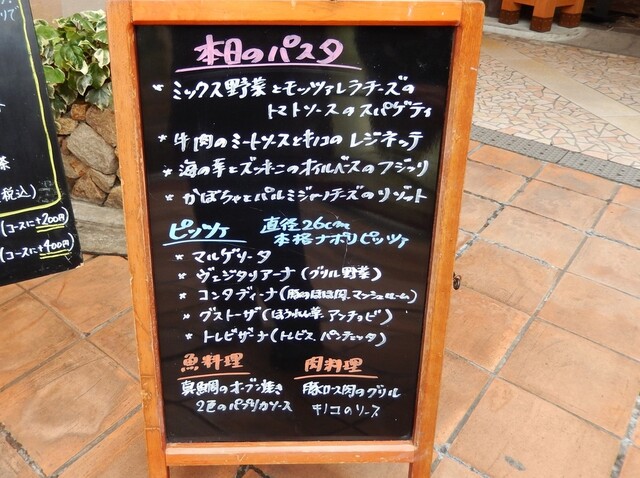 本日のパスタ
* ミックス野菜とモッツァレラチーズの
トマトソースのスパゲティ
* 牛肉のミートソースとキノコのレジネッテ
* 海の幸とズッキーニのオイルベースのフジッリ
* かぼちゃとパルミジャーノチーズのリゾット
ピッツァ 直径26cm
本格ナポリピッツァ
* マルゲリータ
* ヴェジタリアーナ(グリル野菜)
* コンタディーナ(豚のほほ肉、マッシュルーム)
* グストーザ(ほうれん草、アンチョビ)
* トレビザーナ(トレビス、パンチェッタ)
魚料理
真鯛のオーブン焼き
2色のパプリカソース
肉料理
豚ロース肉のグリル
キノコのソース
りで
菜
税込)
(コースに+200円)
(コースに+400円)